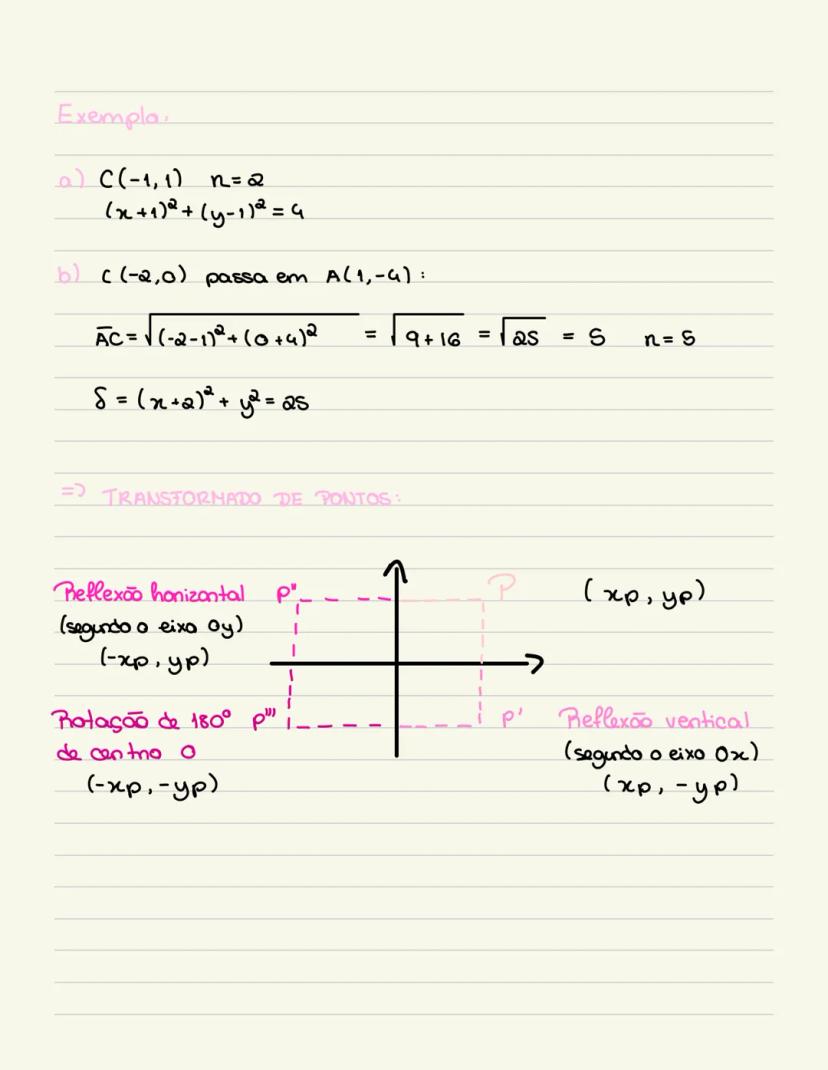 Exemplo:
a) C(-1,1) r=2
(x+1)²+(y-1)²=4
b) C(-2,0) passa em A(1,-4):
A̅C̅=√((-2-1)²+(0+4)²) = √(9+16) = √25 = 5 r=5
δ = (x+2)²+ y²= 25
=> TRANSFORMADO DE PONTOS:
Reflexão horizontal P"
(segundo o eixo Oy)
(-xp, yp)
P
(xp, yp)
Rotação de 180° P'''
de centro O
(-xp,-yp)
P' Reflexão vertical
(segundo o eixo Ox)
(xp, -yp)